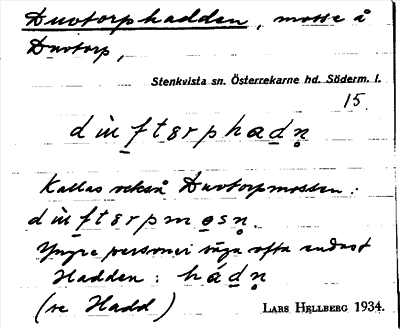 Duvtorphadden, mosse å
Duvtorp,
Stenkvista sn. Österrekarne hd. Söderm. l.
15.
d ù̱ f t ɘ r p h a̱ d n̥
Kallas också Duvtorpmossen:
d ù̱ f t ɘ r p m ɵ̱ s n̥.
Yngre personer säga ofta endast
Hadden: h á̱ d n̥
(se Hadd)
LARS HELLBERG 1934.